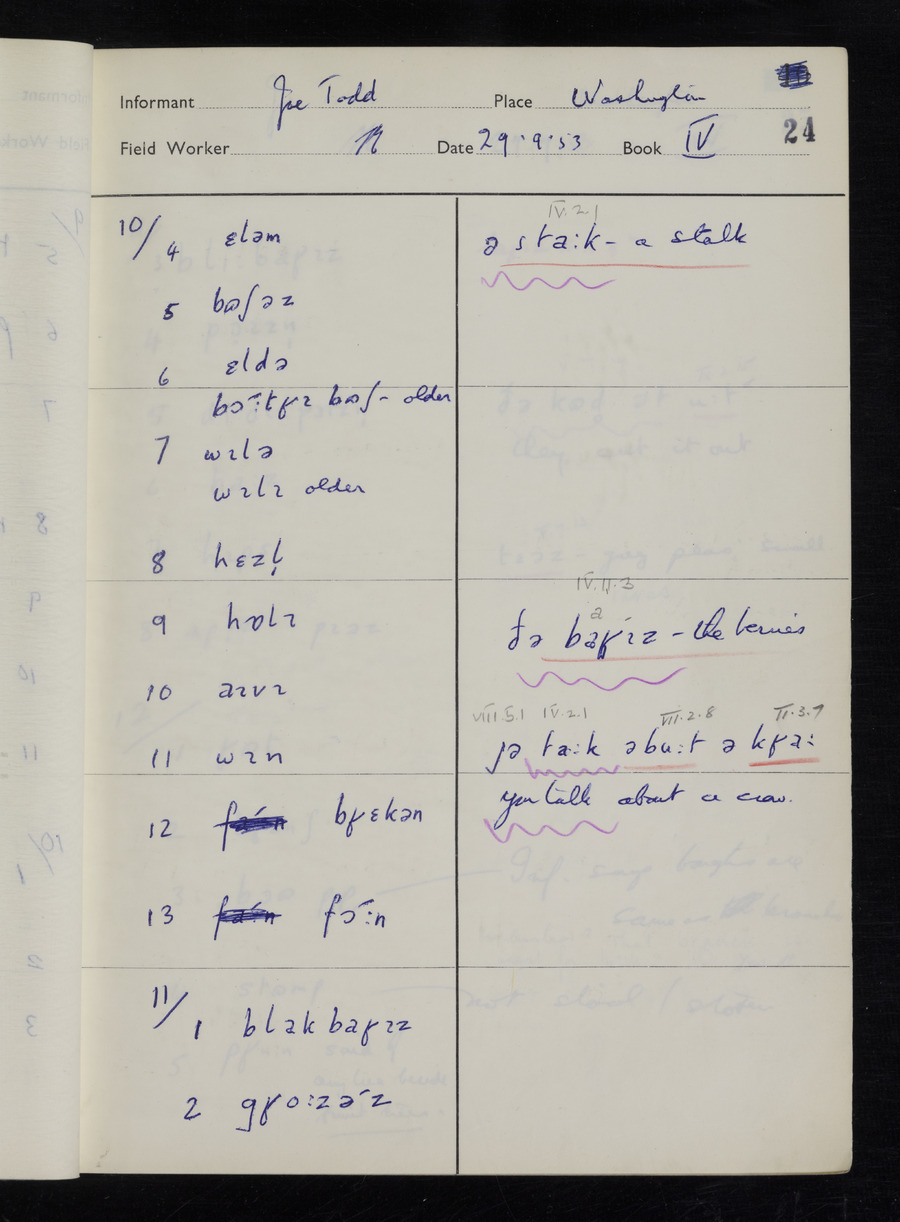 Informant Joe Todd Place Washington
Field Worker Date 29.9.53 Book IV 24
10/4 ɛləm
5 bʊʃəz
6 ɛldə
bɔ̈:tʁɪ bʊʃ - older
7 wɪlə
wɪlɪ older
8 hɛzl̩
9 hɒlɪ
10 aɪvɪ
11 wɪn
12 bʁɛkən
13 fɔ̈:n
11/1 blakbaʁɪz
2 gʁo:zəz
IV.2.1
ə sta:k - a stalk
IV.11.3
a
ðə bæʁɪz - the berries
VIII.5.1 IV.2.1 VII.2.8 II.3.7
jə ta:k əbu:t ə kʁa:
you talk about a crow.